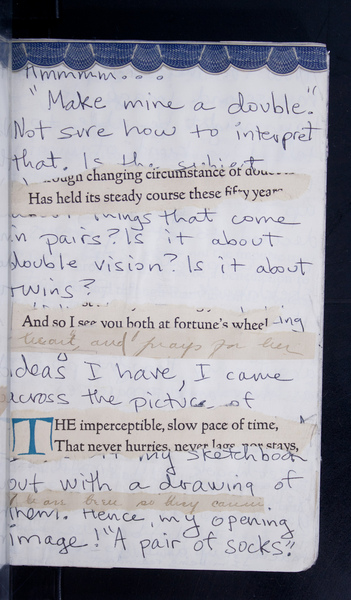 Hmmmm...
"Make mine a double."
Not sure how to interpret
that. Is the subject
changing circumstance of
Has held its steady course these fifty years
things that come
in pairs? Is it about
double vision? Is it about
twins?
And so I see you both at fortune's wheel ing
heart, and prays for her
ideas I have, I came
across the picture of
THE imperceptible, slow pace of time,
That never hurries, never lags, nor stays,
my sketchbook
out with a drawing of
them. Hence, my opening
image! "A pair of socks".